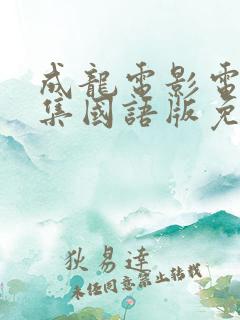 成龍電影電
集國語版免
狄易達
未经同意禁止转载